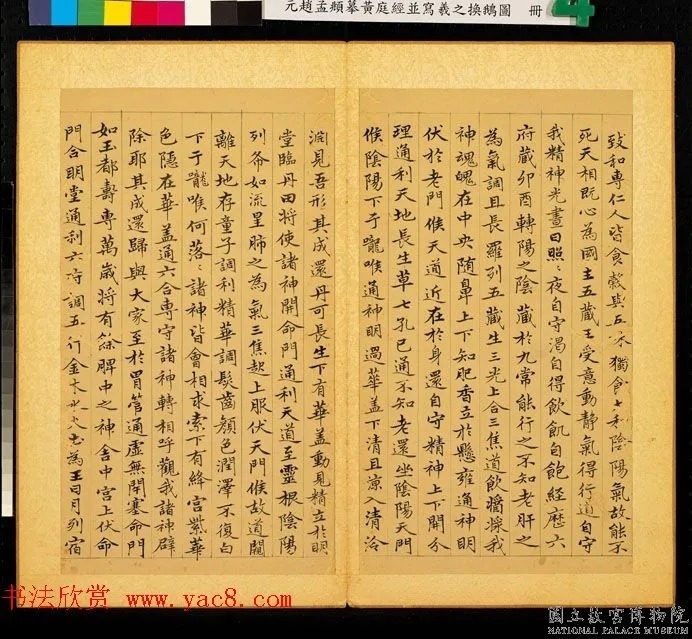 元趙孟頫摹黃庭經並寫羲之換鵝圖 冊
致和專仁人皆食穀與五味獨食太和陰陽氣故能不
死天相既心為國主五藏王受意動靜氣得行道自守
我精神光晝日照〻夜自守渴自得飲飢自飽經歷六
府藏卯酉轉陽之陰藏於九常能行之不知老肝之
為氣調且長羅列五藏生三光上合三焦道飲醬漿我
神魂魄在中央随鼻上下知肥香立於懸雍通神明
伏於老門候天道近在於身還自守精神上下開分
理通利天地長生草七孔已通不知老還坐陰陽天門
候陰陽下于嚨喉通神明過華蓋下清且涼入清泠
淵見吾形其成還丹可長生下有華蓋動見精立於明
堂臨丹田将使諸神開命門通利天道至靈根陰陽
列布如流星肺之為氣三焦起上服伏天門候故道闚
離天地存童子調利精華調髮齒顏色潤澤不復白
下于嚨喉何落〻諸神皆會相求索下有絳宮紫華
色隱在華蓋通六合專守諸神轉相呼觀我諸神辟
除耶其成還歸與大家至於胃管通虛無閉塞命門
如玉都壽專萬歲将有餘脾中之神舍中宮上伏命
門合明堂通利六府調五行金木水火土為王日月列宿
书法欣赏 www.yac8.com
國立故宮博物院
NATIONAL PALACE MUSEUM